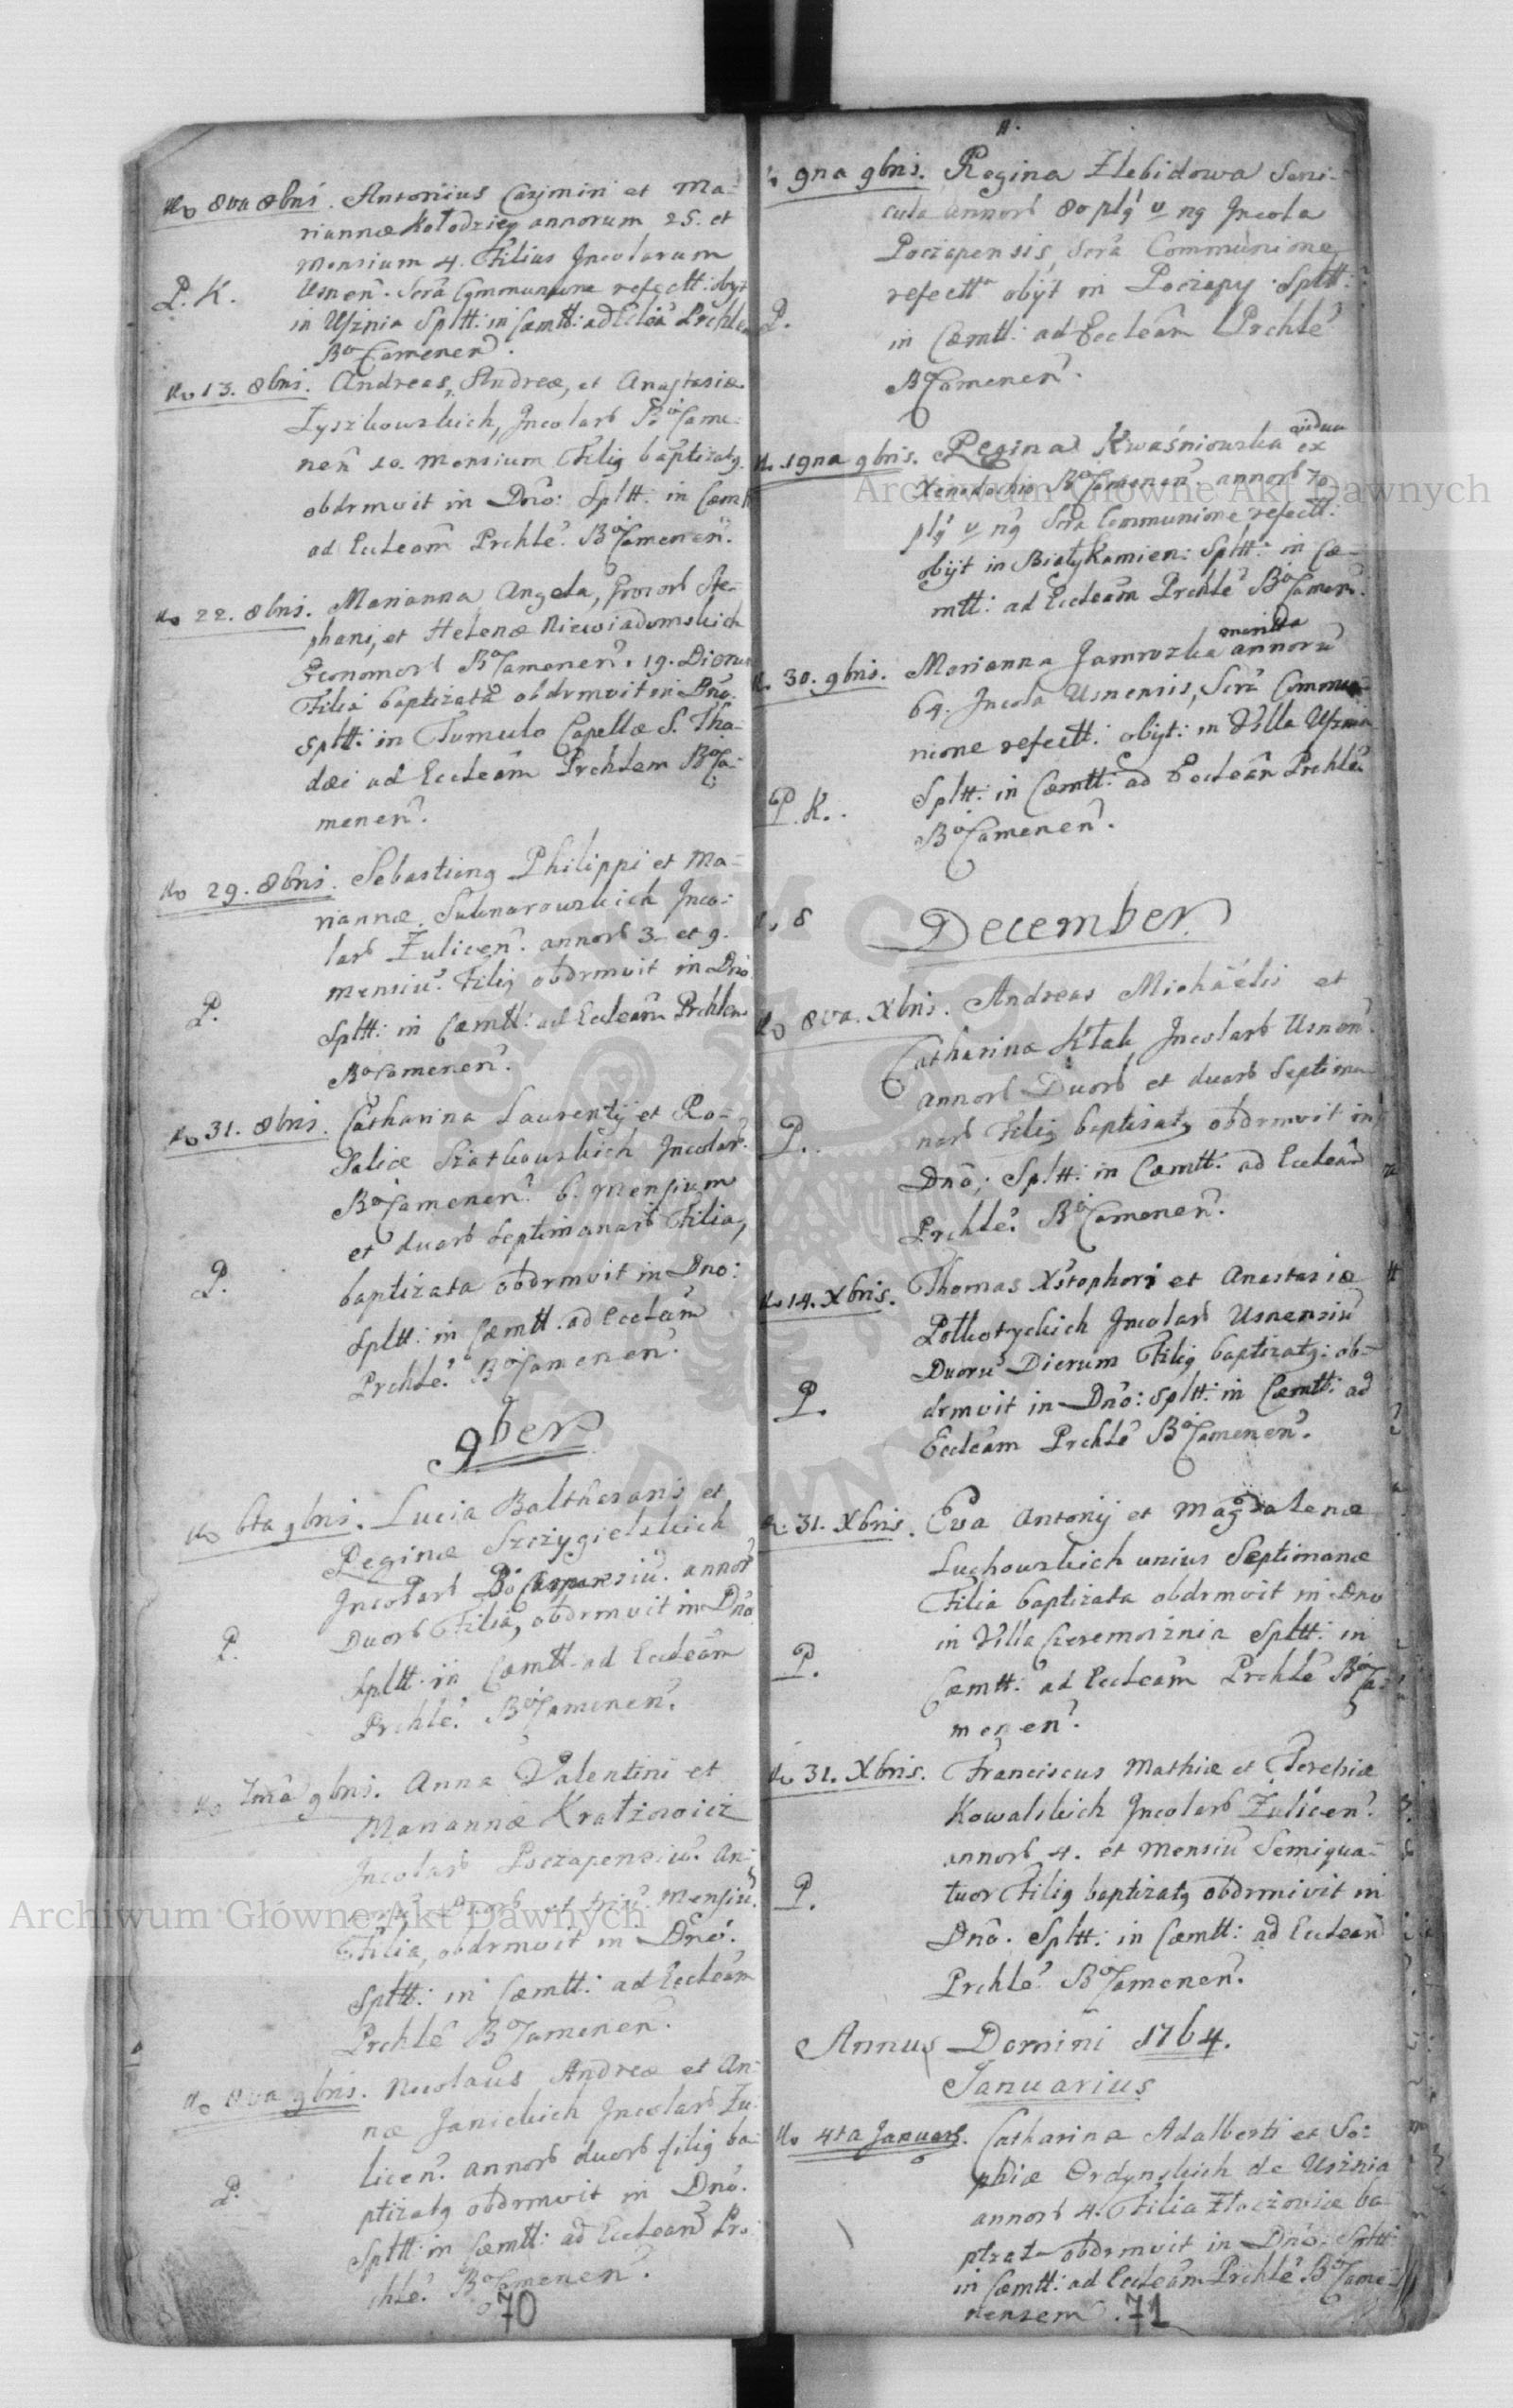 No 8va 8bris. Antonius Casimiri et Ma-
riannæ Kołodziey annorum 25. et
Mensium 4. Filius Incolarum
P. K. Usnen. Sera Communione refectt: obyt
in Usznia Spltt: in Cæmtt: ad Eccleam Prchlem
Bo Camenen.
No 13. 8bris. Andreas, Andreæ, et Anastasiæ
Lyszkowskich, Incolarb Bo Came-
nen 10. Mensium Filiq baptizatq
obdrmvit in Dno: Spltt: in Cæmtt
ad Eccleam Prchle. Bo Camenen.
No 22. 8bris. Marianna Angela, Grosorb Ste-
phani, et Helenæ Niewiadomskich
Economorb Bo Camenen. 19. Dierum
Filia baptizata obdrmvit in Dno.
Spltt: in Tumulo Capellæ S. Tha-
dæi ad Eccleam Prchlem Bo Ca-
menen.
No 29. 8bris. Sebastianq Philippi et Ma-
riannæ Suknarowskich Inco-
larb Żulicen. annorb 3. et 9.
mensiu. Filiq obdrmvit in Dno
P. Spltt: in Cæmtt: ad Eccleam Prchlem
Bo Camenen.
No 31. 8bris. Catharina Laurentij et Ro-
saliæ Sziatkowskich Incolar.
Bo Camenen. 6. Mensium
et duarb Septimanarb Filia,
P. baptizata obdrmvit in Dno:
Spltt: in Cæmtt. ad Eccleam
Prchle. Bo Camenen.
9ber
No 6ta 9bris. Lucia Balthazaris et
Reginæ Szczygielskich
Incolarb annor
Duorb Filia, obdrmvit in Dno
P. Spltt: in Cæmtt. ad Eccleam
Prchle. Bo Camenen.
No 7ma 9bris. Anna Valentini et
Mariannæ Kratżowicż
Incolarb Poczapensiu. An-
duorb et triu. Mensiu.
Filia, obdrmvit in Dno.
Spltt: in Cæmtt: ad Eccleam
Prchle Bo Camenen.
No 8va 9bris. Nicolaus Andreæ et An-
næ Janickich Incolarb Żu-
licen. annorb duorb filiq ba-
P. ptizatq obdrmvit in Dno.
Spltt: in Cæmtt: ad Eccleam Pr-
chle. Bo Camenen.
70
No 9na 9bris. Regina Zlebidowa Seni-
cula annorb 80 plq v nq Incola
Poczapensis, Sera Communione
refectta obijt in Poczapy. Spltt:
P. in Cæmtt: ad Eccleam Prchle
Bo Camenen.
No 19na 9bris. Regina Kwaśniowska vidua ex
Xenodochio Bo Camenen. annorb 70
plq v nq Sera Communione refectt:
obijt in Białykamien: Spltt: in Cæ-
mtt: ad Eccleam Prchle Bo Camen.
No 30. 9bris. Marianna Jamrozka maritta annoru
64. Incola Usnensis, Sera Commu-
nione refectt: obijt: in Villa Usznia
P. K. Spltt: in Cæmtt: ad Eccleam Prchle
Bo Camenen.
No 8 December
No 8va. Xbris. Andreas Michaëlis et
Catharinæ Ktak Incolarb Usnen.
annorb Duorb et duarb Septima-
P. narb Filiq baptizatq obdrmvit in
Dno; Spltt: in Cæmtt: ad Eccleam
Prchle. Bo Camenen.
No 14. Xbris. Thomas Xstophori et Anastasiæ
Połhotyckich Incolarb Usnensiu
Duoru Dierum Filiq baptizatq: ob-
P. drmvit in Dno: Spltt: in Cæmtt: ad
Eccleam Prchle Bo Camenen.
No 31. Xbris. Eva Antonij et Magdalenæ
Luchowskich unius Septimanæ
Filia baptizata obdrmvit in Dno
in Villa Czeremosznia Spltt: in
P. Cæmtt: ad Eccleam Prchle Bo Ca-
menen.
No 31. Xbris. Franciscus Mathiæ et Terehsiæ
Kowalskich Incolarb Żulicen.
annorb 4. et Mensiu Semiqua-
P. tuor Filiq baptizatq obdrmivit in
Dno. Spltt: in Cæmtt: ad Eccleam
Prchle Bo Camenen.
Annus Domini 1764.
Januarius
No 4ta Januarij. Catharina Adalberti et So-
phiæ Ordynskich de Usżnia
annorb 4. Filia Złoczoviæ ba-
ptzata obdrmvit in Dno: Spltt:
in Cæmtt: ad Eccleam Prchle Bo Came-
nensem.
71
Archiwum Główne Akt Dawnych
Archiwum Główne Akt Dawnych